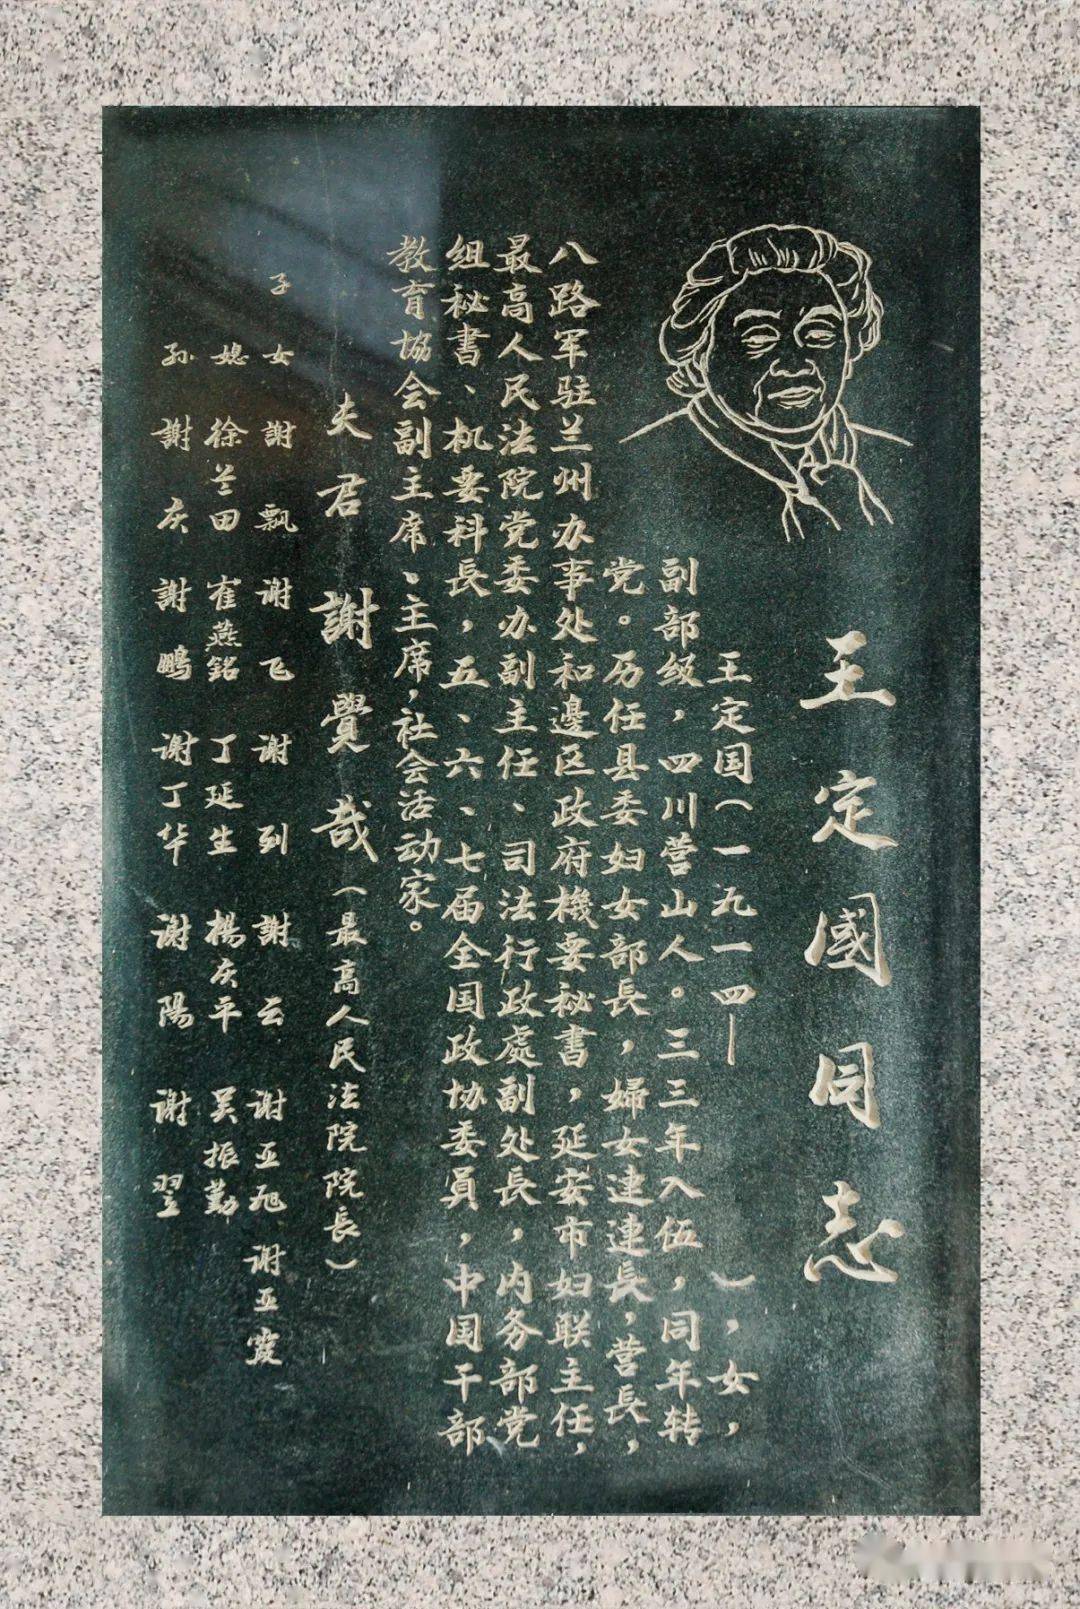 王定國同志
王定国(一九一四— ),女,
副部级,四川营山人。三三年入伍,同年转
党。历任县委妇女部長,婦女連連長,营長,
八路军驻兰州办事处和邊区政府機要秘書,延安市妇联主任,
最高人民法院党委办副主任、司法行政處副处長,内务部党
组秘書、机要科長,五、六、七届全国政协委員,中国干部
教育協会副主席、主席,社会活动家。
夫君 謝覺哉(最高人民法院院長)
子女 謝飘 谢飞 谢列 謝云 谢亚旭 谢亚霞
媳 徐兰田 崔燕銘 丁延生 楊庆平 吴振勤
孙 謝庆 謝鹏 谢丁华 谢陽 谢翌